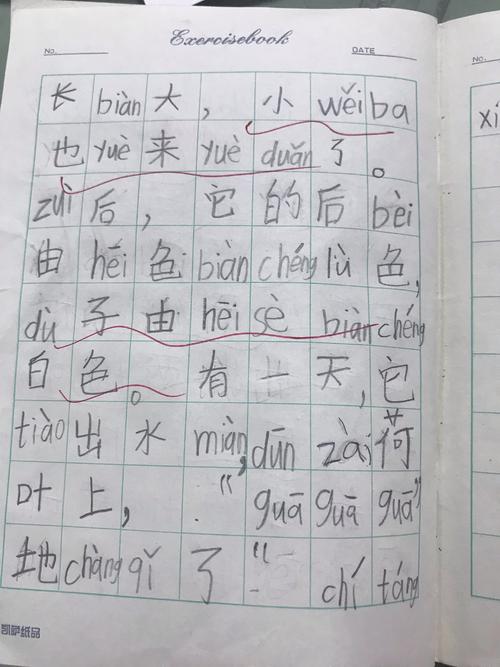 Exercisebook
No.
DATE
No.
长 biàn 大 , 小 wěi ba
也 yuè 来 yuè duǎn 了 。
zuì 后 , 它 的 后 bèi
由 hēi 色 biàn chéng lǜ 色 ,
dù 子 由 hēi sè biàn chéng
白 色 。 有 一 天 , 它
tiào 出 水 miàn , dūn zài 荷
叶 上 , “ guā guā guā ”
地 chàng qǐ 了 “ chí táng
xi
凯萨纸品